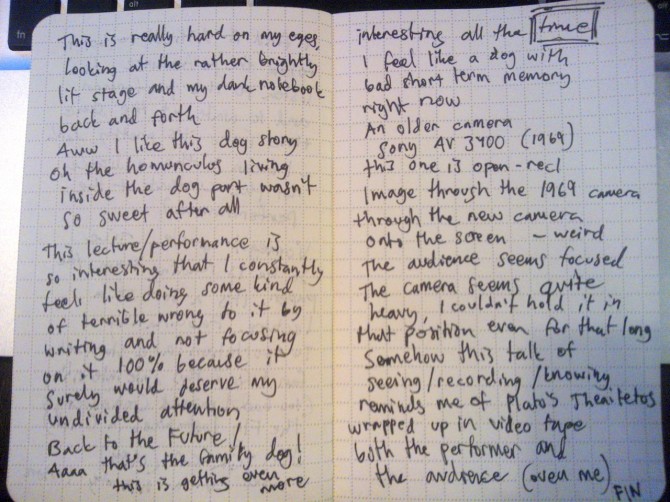 This is really hard on my eyes,
looking at the rather brightly
lit stage and my dark notebook
back and forth
Aww I like this dog story
oh the homunculos living
inside the dog part wasn't
so sweet after all
This lecture/performance is
so interesting that I constantly
feel like doing some kind
of terrible wrong to it by
writing and not focusing
on it 100% because it
surely would deserve my
undivided attention
Back to the Future!
Aaaa that's the family dog!
this is getting even more
interesting all the time
I feel like a dog with
bad short term memory
right now
An older camera
Sony AV 3400 (1969)
this one is open-reel
Image through the 1969 camera
through the new camera
onto the screen - weird
The audience seems focused
The camera seems quite
heavy, I couldn't hold it in
that position even for that long
Somehow this talk of
seeing/recording/knowing
reminds me of Plato's Theaitetos
wrapped up in video tape
both the performer and
the audience (even me)
FIN